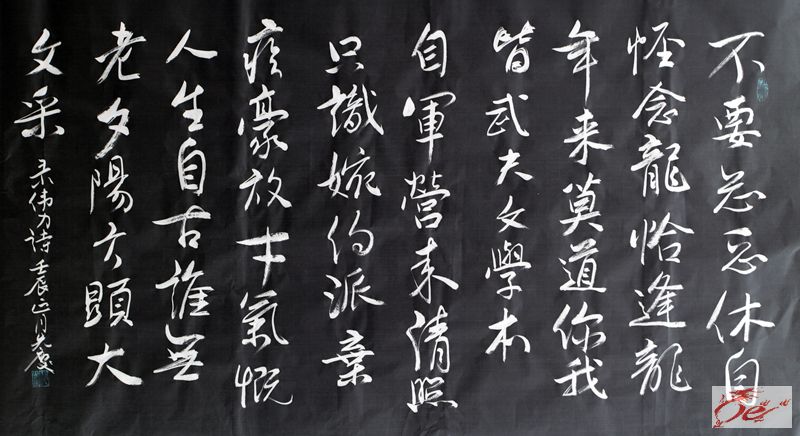 不要休自
怪念龍恰逢龍
年来莫道你我
皆武夫文學本
自軍營来清照
只識婉约派棄
疾豪放氣慨
人生自古誰無
老夕陽方顕大
文采
录伟力诗 壬辰正月